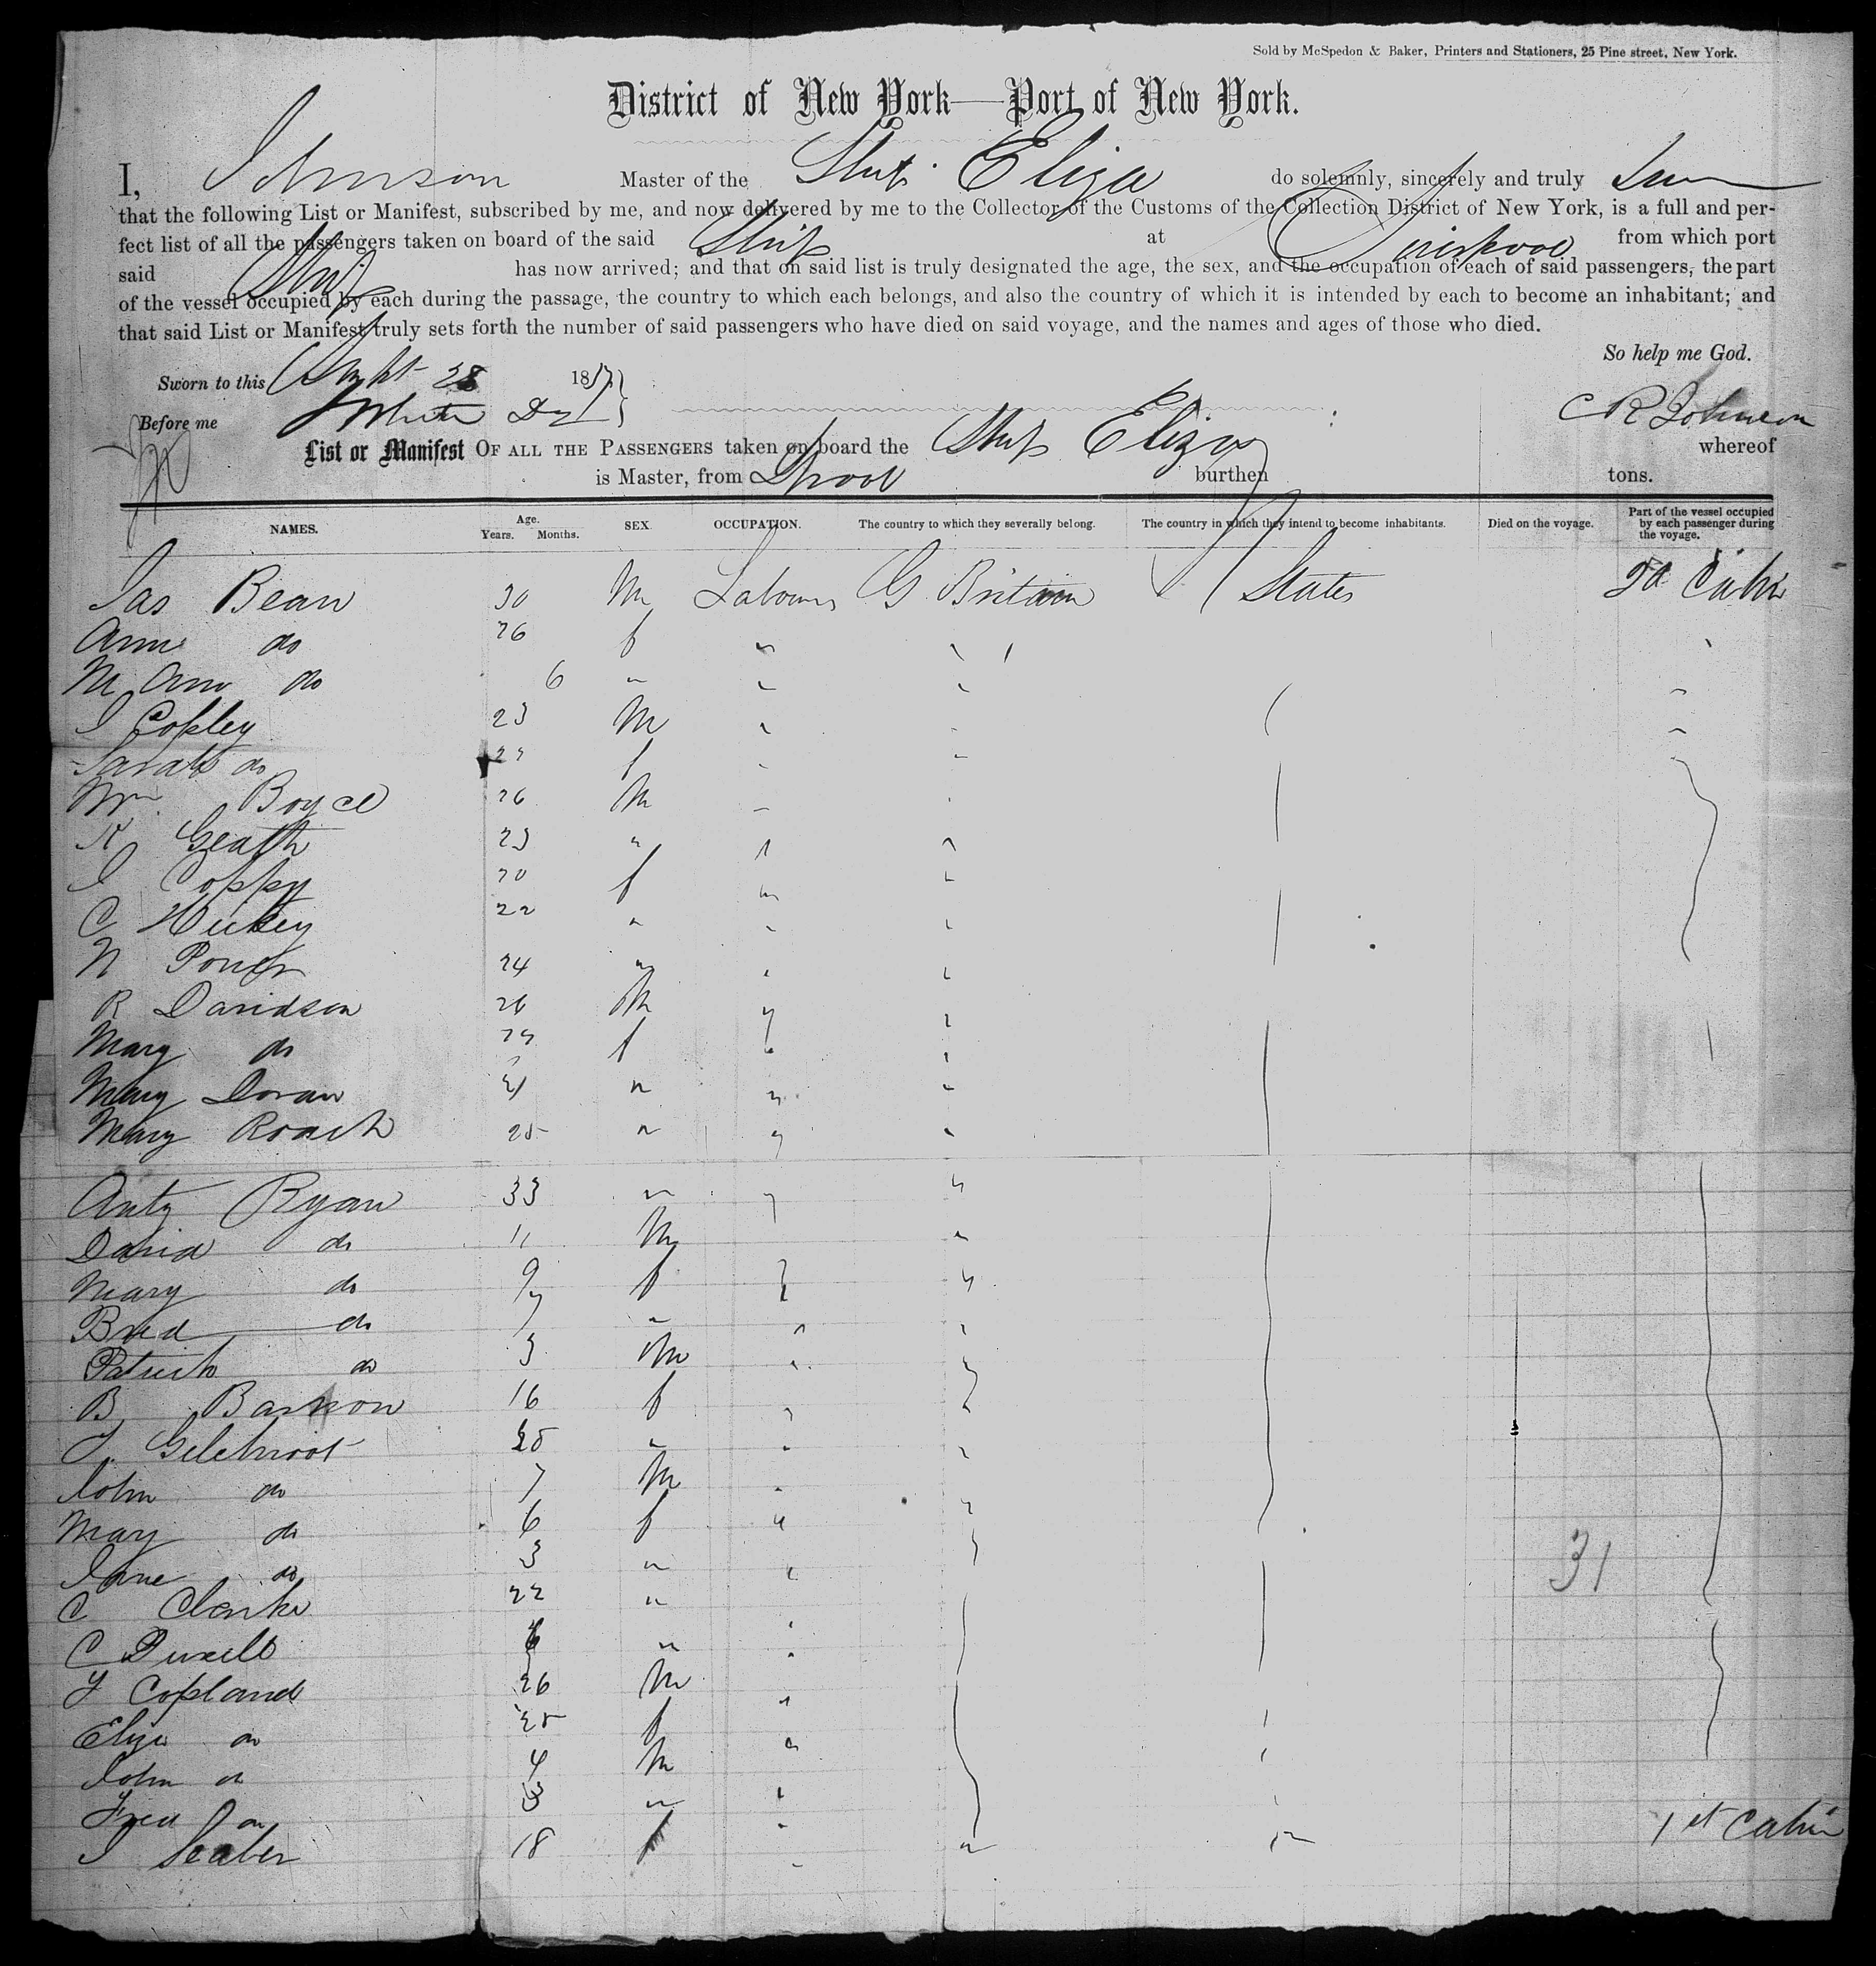 Sold by McSpedon & Baker, Printers and Stationers, 25 Pine street, New York.
District of New York—Port of New York.
I, Johnson Master of the Ship Eliza do solemnly, sincerely and truly
that the following List or Manifest, subscribed by me, and now delivered by me to the Collector of the Customs of the Collection District of New York, is a full and per-
fect list of all the passengers taken on board of the said Ship at Liverpool from which port
said Ship has now arrived; and that on said list is truly designated the age, the sex, and the occupation of each of said passengers, the part
of the vessel occupied by each during the passage, the country to which each belongs, and also the country of which it is intended by each to become an inhabitant; and
that said List or Manifest truly sets forth the number of said passengers who have died on said voyage, and the names and ages of those who died.
So help me God.
Sworn to this Sept 28 18
Before me White C R Johnson
List or Manifest OF ALL THE PASSENGERS taken on board the Ship Eliza whereof
is Master, from Lpool burthen tons.
NAMES. Age. Years. Months. SEX. OCCUPATION. The country to which they severally belong. The country in which they intend to become inhabitants. Died on the voyage. Part of the vessel occupied by each passenger during the voyage.
Jas Bean 30 M Labourer G Britain U States 2d Cabin
Ann do 26 f
M Ann do 6 "
J Copley 23 M
Sarah do f
Wm Boyce 26 M
R Geath 23 "
J Coppy 20 f
C Hickey 22 "
N Power 24 "
R Davidson 26 M
Mary do f
Mary Doran 21 "
Mary Roach 25 "
Anty Ryan 33 "
David do 11 M
Mary do 9 f
Brid do 7 "
Patrick do 3 M
B Bannon 16 f
J. Gilchrist "
John do 7 M
Mary do 6 f
Jane do 3 "
C Clarke 22 "
C "
J Copland 26 M
Eliza do 25 f
John do 4 M
Fred do 3 "
J 18 f " " 1st Cabin
31